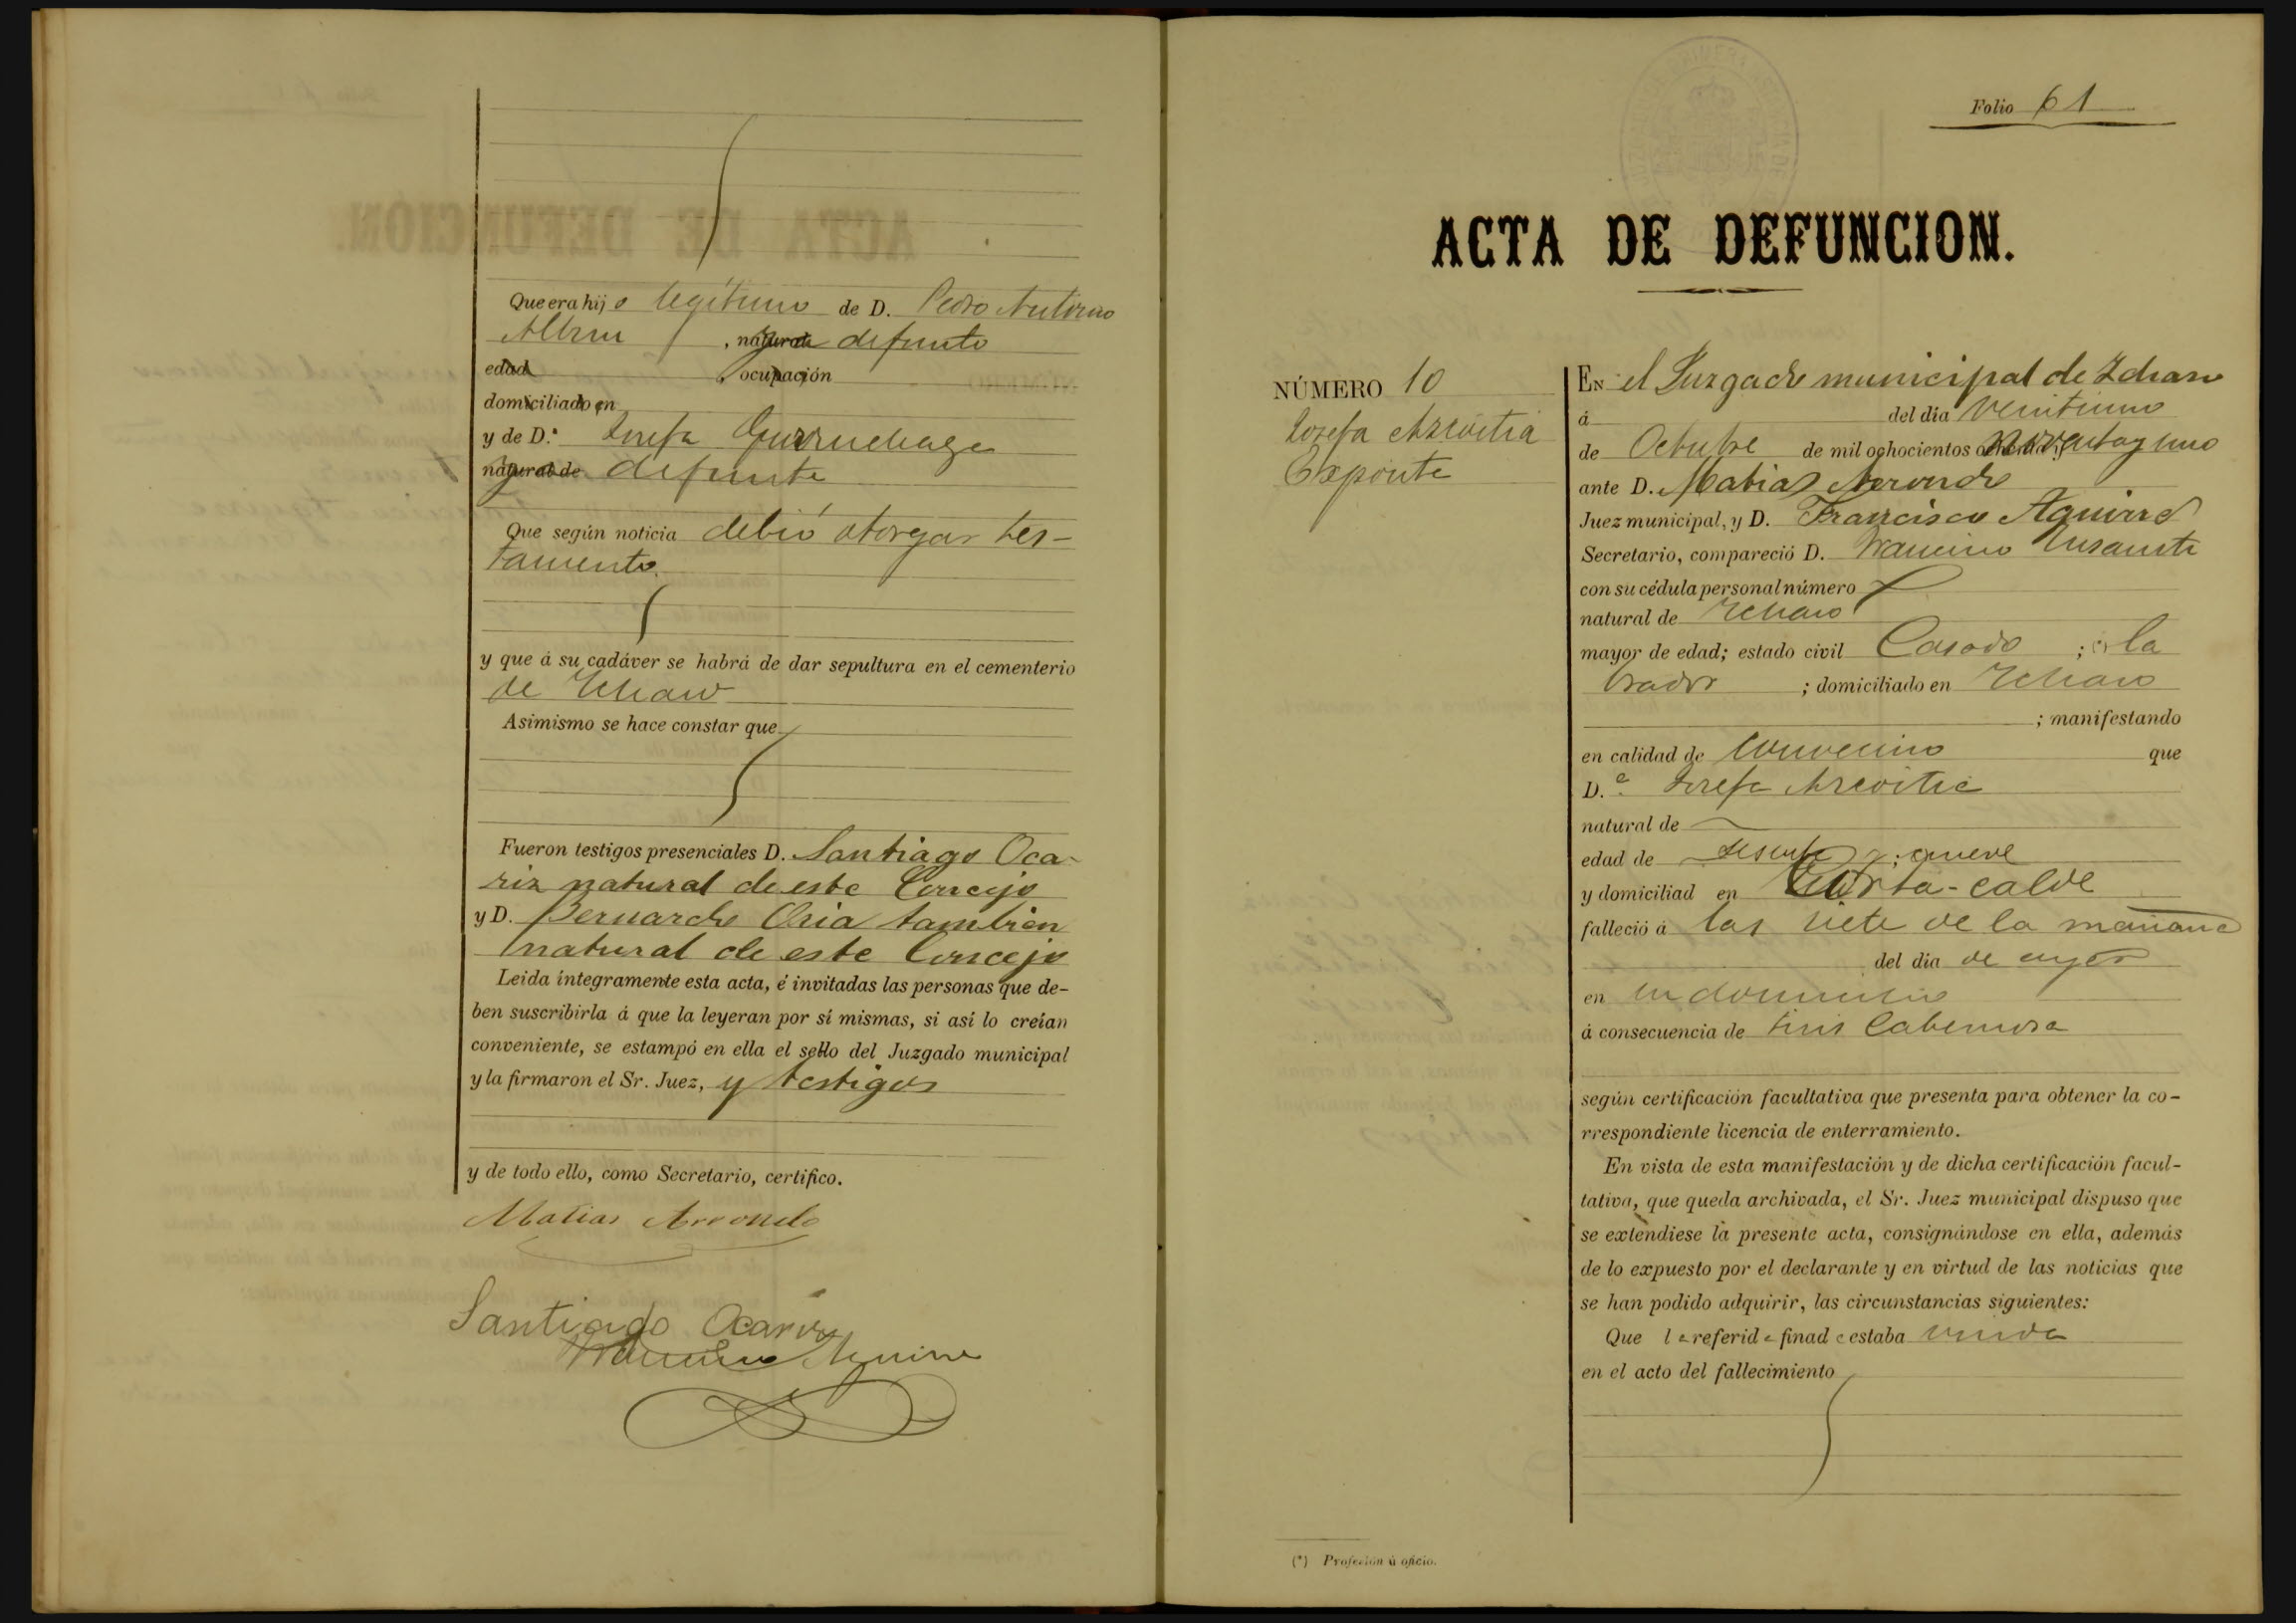 Que era hijo legítimo de D. Pedro Antonio
Albizu, natural de defunto
edad , ocupación
domiciliado en
y de D.ª Josefa Gurruchaga
natural de defunta
Que según noticia debió otorgar tes-
tamento
y que á su cadáver se habrá de dar sepultura en el cementerio
de Zcharo
Asimismo se hace constar que
Fueron testigos presenciales D. Santiago Oca-
riz natural de este Concejo
y D. Bernardo Oria tambien
natural de este Concejo
Leida íntegramente esta acta, é invitadas las personas que de-
ben suscribirla á que la leyeran por sí mismas, si así lo creían
conveniente, se estampó en ella el sello del Juzgado municipal
y la firmaron el Sr. Juez, y testigos
y de todo ello, como Secretario, certifico.
Matias Arrondo
Santiago Ocariz
Francisco Aguirre
Folio 61
ACTA DE DEFUNCION.
NÚMERO 10
Josefa Azcoitia
Exposita
EN el Juzgado municipal de Zcharo
á del dia veintiuno
de Octubre de mil ochocientos noventa y uno
ante D. Matias Arrondo
Juez municipal, y D. Francisco Aguirre
Secretario, compareció D. Francisco
con su cédula personal número
natural de Zcharo
mayor de edad; estado civil Casado ; la
brador ; domiciliado en Zcharo
; manifestando
en calidad de convecino que
D.ª Josefa Azcoitia
natural de
edad de sesenta y nueve
y domiciliad en Torta-calde
falleció á las siete de la mañana
del dia de ayer
en su domicilio
á consecuencia de tisis
según certificación facultativa que presenta para obtener la co-
rrespondiente licencia de enterramiento.
En vista de esta manifestación y de dicha certificación facul-
tativa, que queda archivada, el Sr. Juez municipal dispuso que
se extendiese la presente acta, consignándose en ella, además
de lo expuesto por el declarante y en virtud de las noticias que
se han podido adquirir, las circunstancias siguientes:
Que la referida finada estaba viuda
en el acto del fallecimiento
(*) Profesión ú oficio.